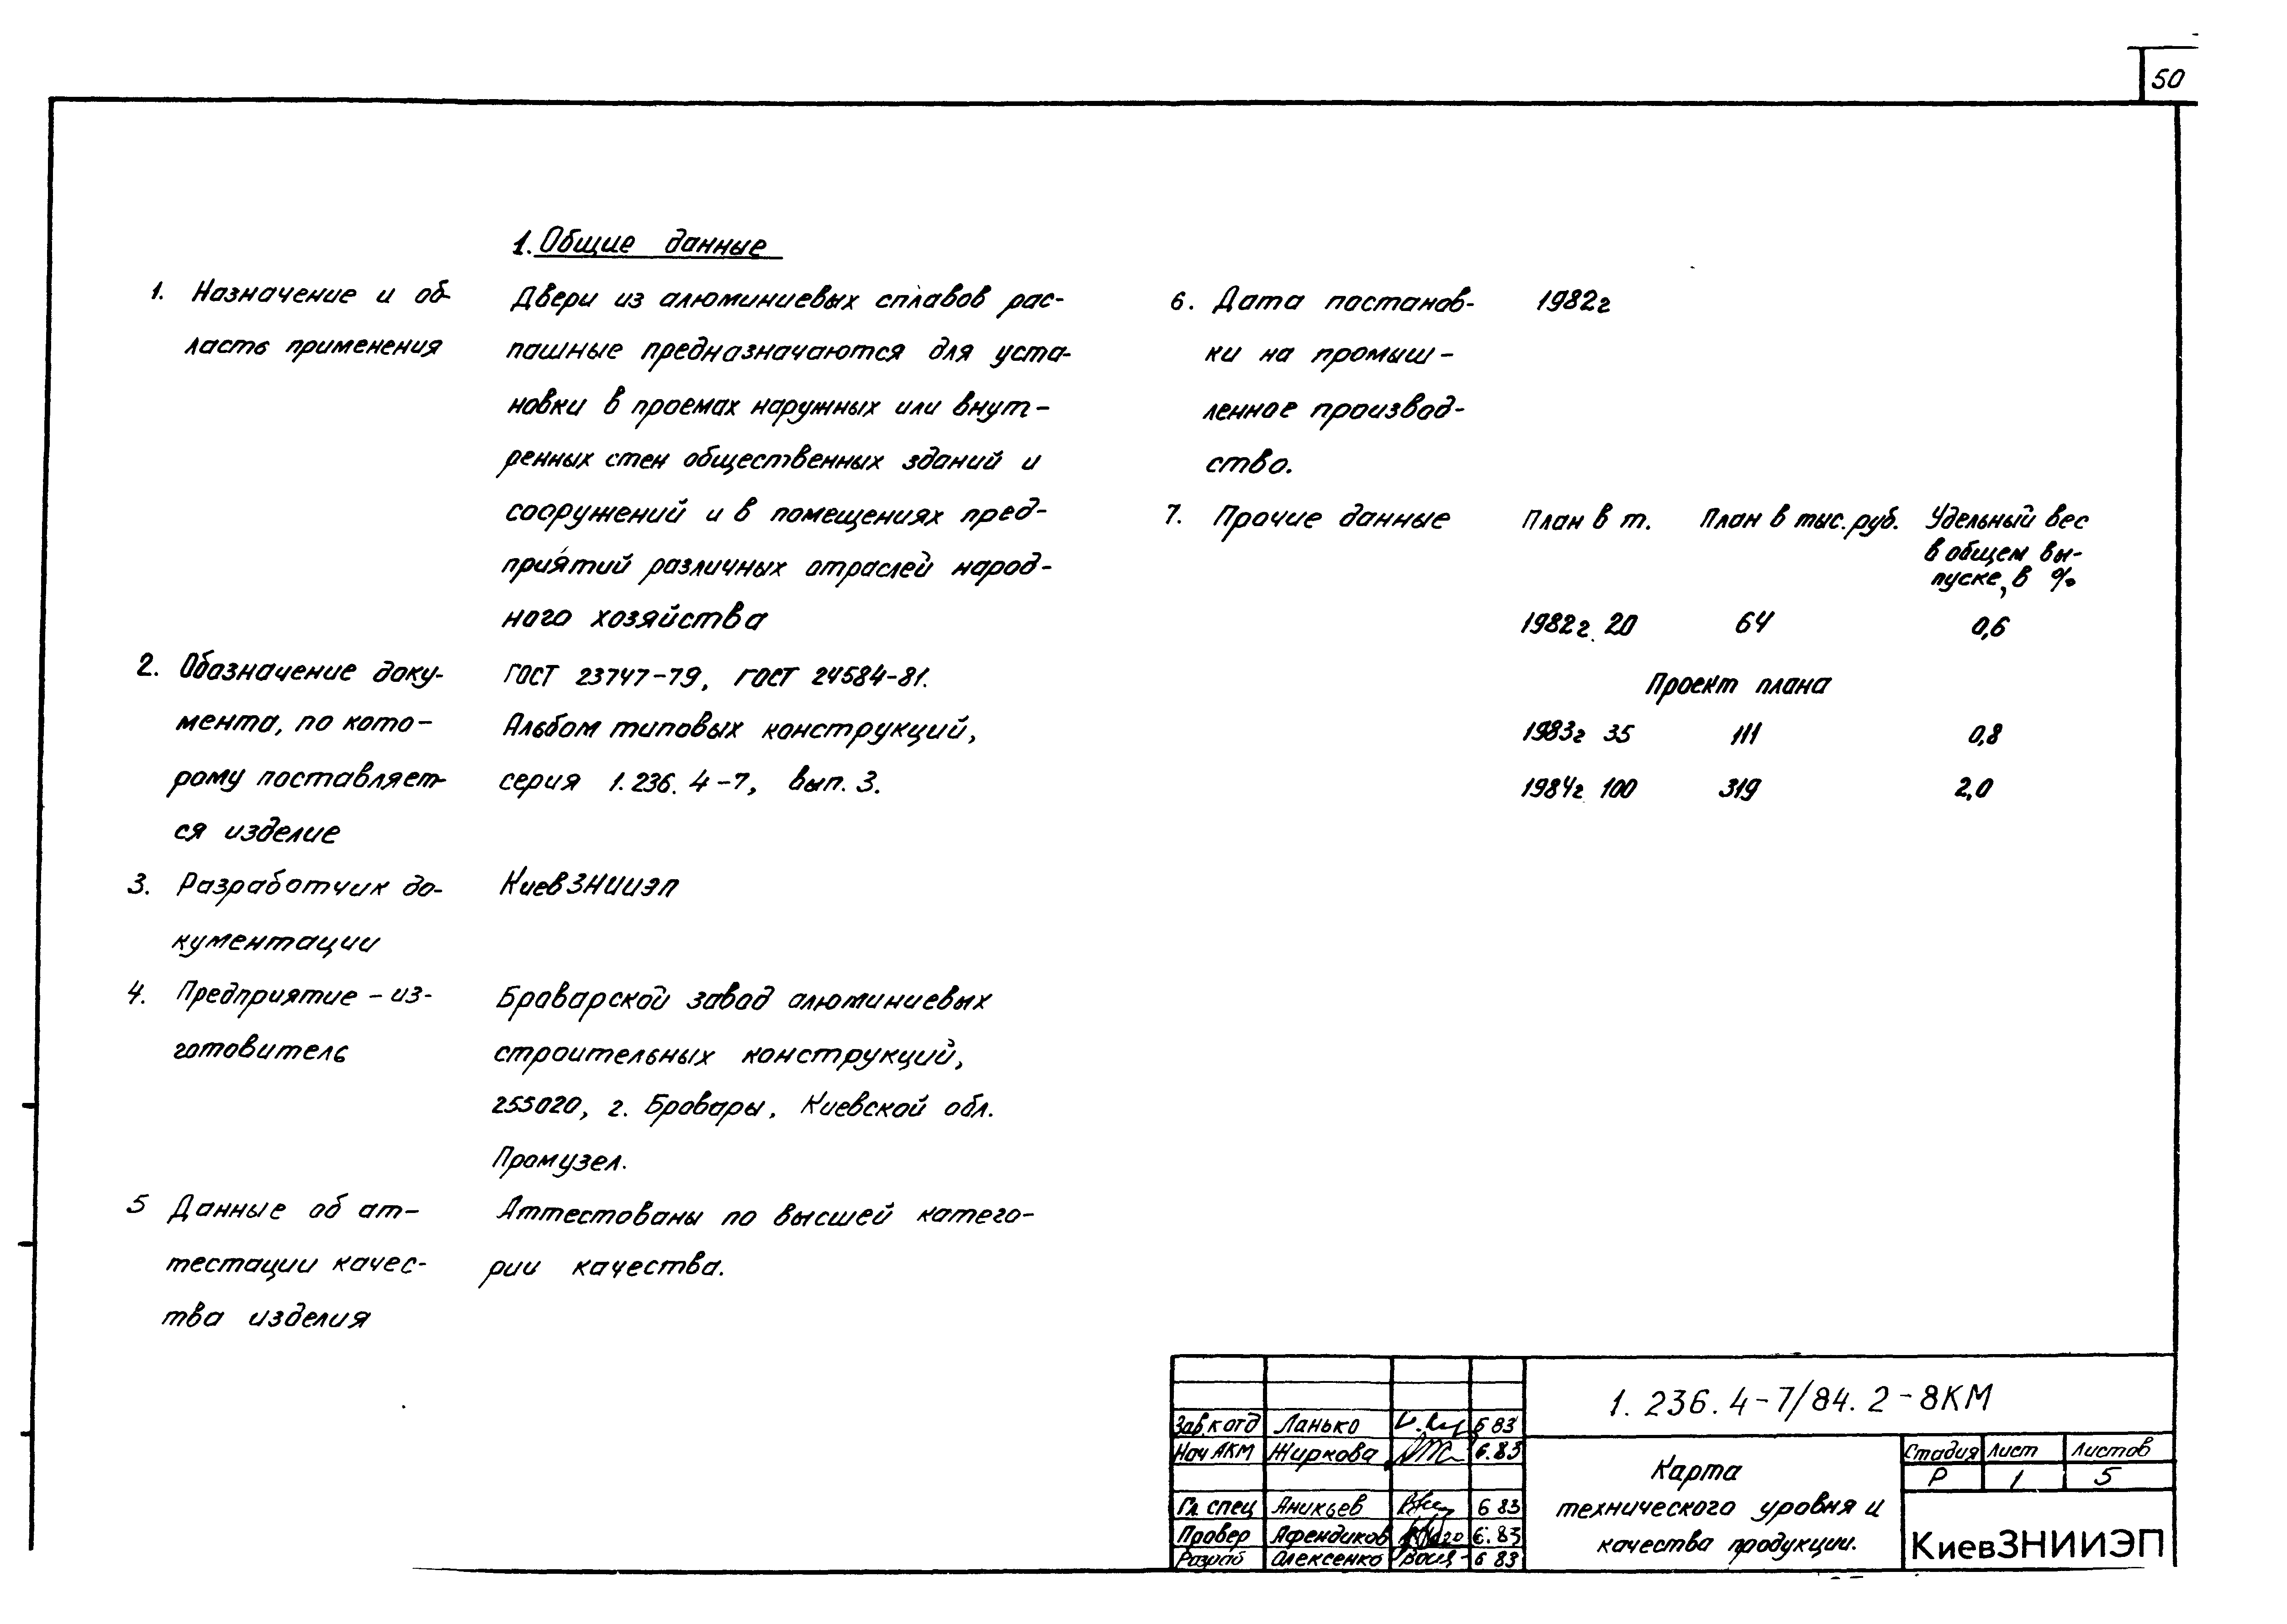 50
1. Общие данные
1. Назначение и об-
ласть применения
Двери из алюминиевых сплавов рас-
пашные предназначаются для уста-
новки в проемах наружных или внут-
ренных стен общественных зданий и
сооружений и в помещениях пред-
приятий различных отраслей народ-
ного хозяйства
2. Обозначение доку-
мента, по кото-
рому поставляет-
ся изделие
ГОСТ 23747-79, ГОСТ 24584-81.
Альбом типовых конструкций,
серия 1.236.4-7, вып. 3.
3. Разработчик до-
кументации
КиевЗНИИЭП
4. Предприятие-из-
готовитель
Броварской завод алюминиевых
строительных конструкций,
255020, г. Бровары, Киевской обл.
Промузел.
5 Данные об ат-
тестации качес-
тва изделия
Аттестованы по высшей катего-
рии качества.
6. Дата постанов-
ки на промыш-
ленное производ-
ство.
1982г
7. Прочие данные
План в т. План в тыс. руб. Удельный вес
в общем вы-
пуске, в %
1982г. 20 64 0,6
Проект плана
1983г 35 111 0,8
1984г. 100 319 2,0
1.236.4-7/84.2-8КМ
Зав.к отд Ланько 6 83
Нач АКМ Жиркова 6.83
Гл. спец Аникьев 6 83
Провер Афендиков 6.83
Разраб Олексенко 6 83
Карта
технического уровня и
качества продукции.
Стадия Лист Листов
Р 1 5
КиевЗНИИЭП